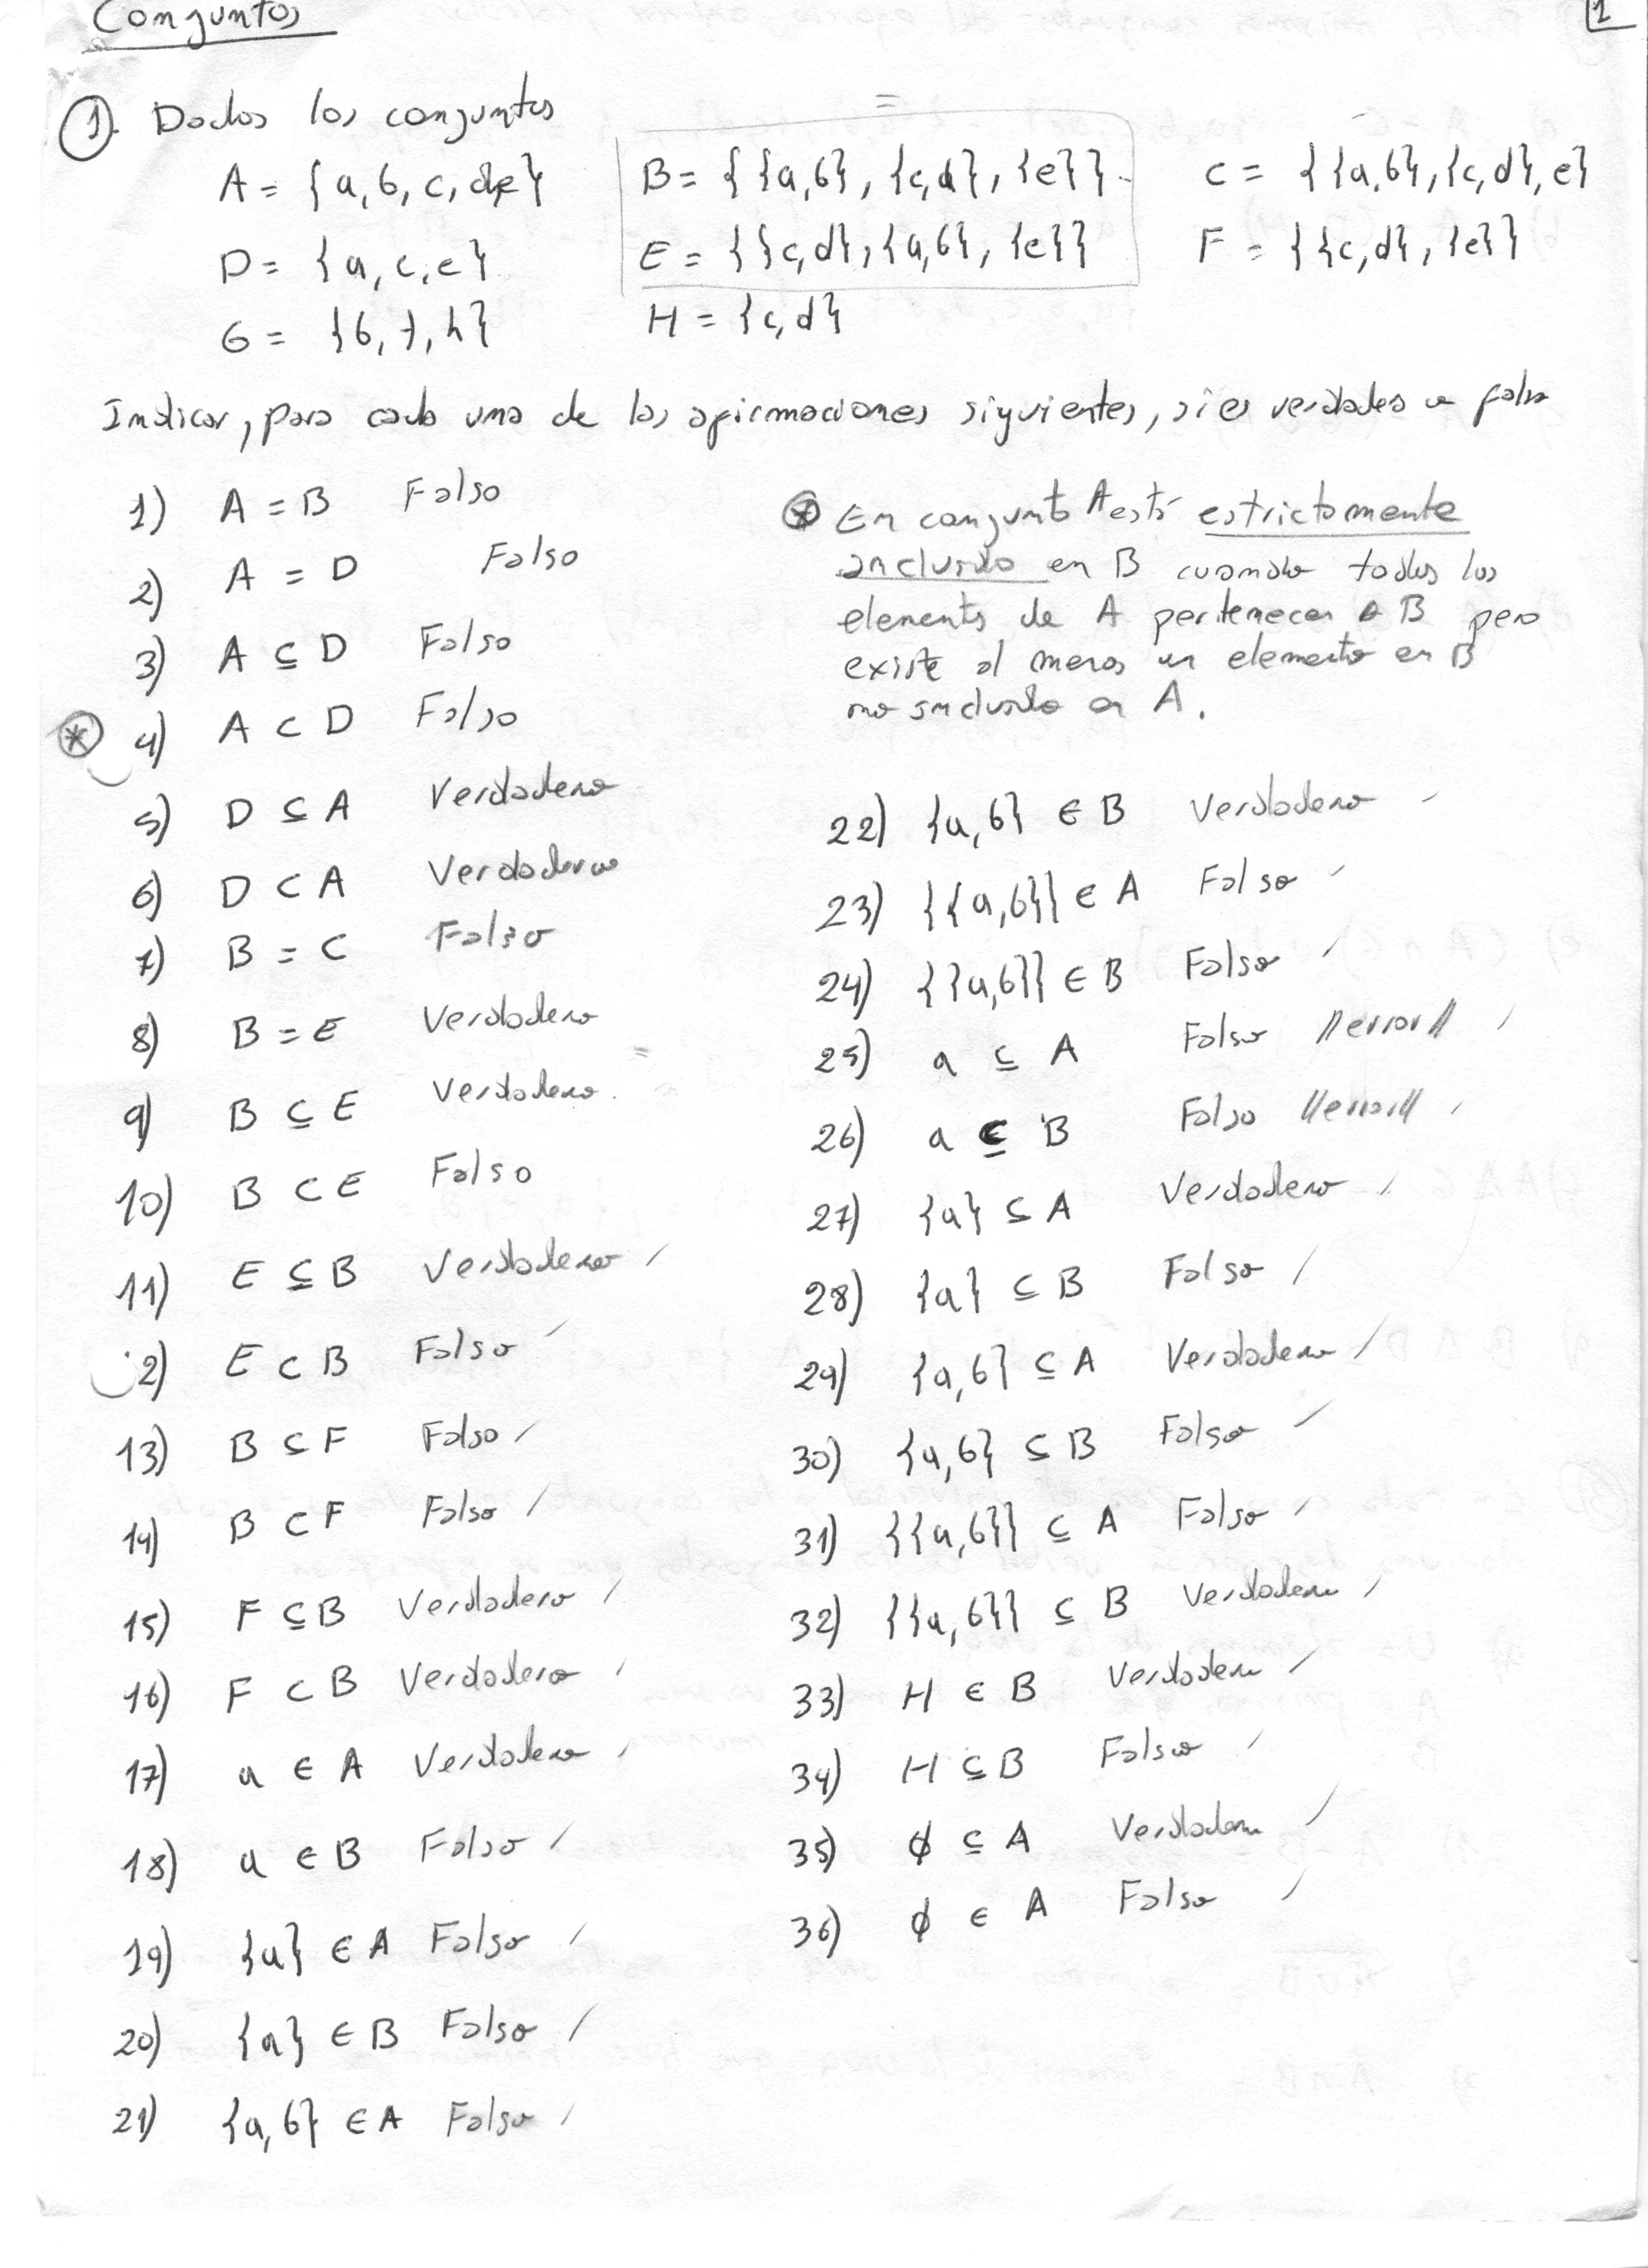 Conjuntos
1
1. Dados los conjuntos
A = {a, b, c, d, e}
B = {{a,b}, {c,d}, {e}}
C = {{a,b}, {c,d}, e}
D = {a, c, e}
E = {{c,d}, {a,b}, {e}}
F = {{c,d}, {e}}
G = {b, f, h}
H = {c, d}
=
Indicar, para cada una de las afirmaciones siguientes, si es verdadera o falsa
1) A = B Falso
2) A = D Falso
3) A ⊆ D Falso
* 4) A ⊂ D Falso
5) D ⊆ A Verdadero
6) D ⊂ A Verdadero
7) B = C Falso
8) B = E Verdadero
9) B ⊆ E Verdadero
10) B ⊂ E Falso
11) E ⊆ B Verdadero
12) E ⊂ B Falso
13) B ⊆ F Falso
14) B ⊂ F Falso
15) F ⊆ B Verdadero
16) F ⊂ B Verdadero
17) a ∈ A Verdadero
18) a ∈ B Falso
19) {a} ∈ A Falso
20) {a} ∈ B Falso
21) {a,b} ∈ A Falso
* En conjunto A está estrictamente
incluido en B cuando todos los
elementos de A pertenecen a B pero
existe al menos un elemento en B
no incluido en A.
22) {a,b} ∈ B Verdadero
23) {{a,b}} ∈ A Falso
24) {{a,b}} ∈ B Falso
25) a ⊆ A Falso //error//
26) a ⊆ B Falso //error//
27) {a} ⊆ A Verdadero
28) {a} ⊆ B Falso
29) {a,b} ⊆ A Verdadero
30) {a,b} ⊆ B Falso
31) {{a,b}} ⊆ A Falso
32) {{a,b}} ⊆ B Verdadero
33) H ∈ B Verdadero
34) H ⊆ B Falso
35) ∅ ⊆ A Verdadero
36) ∅ ∈ A Falso